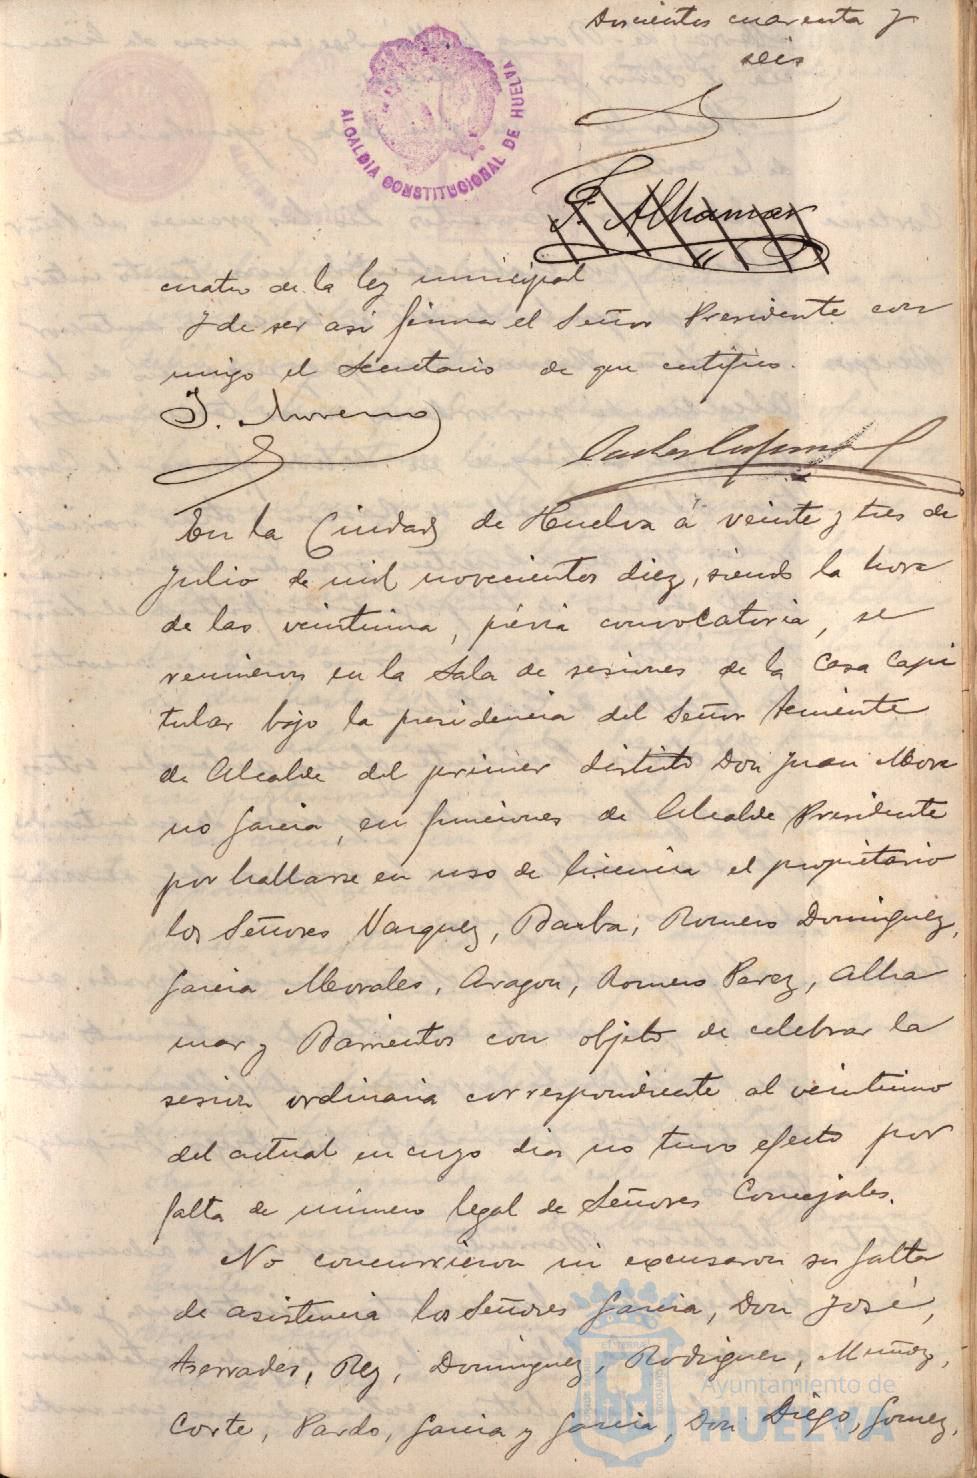 Doscientos cuarenta y
seis
ALCALDIA CONSTITUCIONAL DE HUELVA
F. Alhamar
cuatro de la ley municipal
Y de ser asi firma el Señor Presidente con
migo el Secretario de que certifico.
J. Moreno
En la Ciudad de Huelva á veinte y tres de
Julio de mil novecientos diez, siendo la hora
de las veintiuna, prévia convocatoria, se
reunieron en la Sala de sesiones de la Casa Capi
tular bajo la presidencia del Señor teniente
de Alcalde del primer distrito Don Juan More
no Garcia, en funciones de Alcalde Presidente
por hallarse en uso de licencia el propietario
los Señores Vazquez, Barba, Romero Dominguez,
Garcia Morales, Aragon, Romero Perez, Alha
mar y Barrientos con objeto de celebrar la
sesion ordinaria correspondiente al veintiuno
del actual en cuyo dia no tuvo efecto por
falta de número legal de Señores Concejales.
No concurrieron ni excusaron su falta
de asistencia los Señores Garcia, Don José,
Aserrades, Rey, Dominguez, Rodriguez, Muñoz,
Corte, Pardo, Garcia y Garcia, Don Diego, Gomez,
Ayuntamiento de
HUELVA